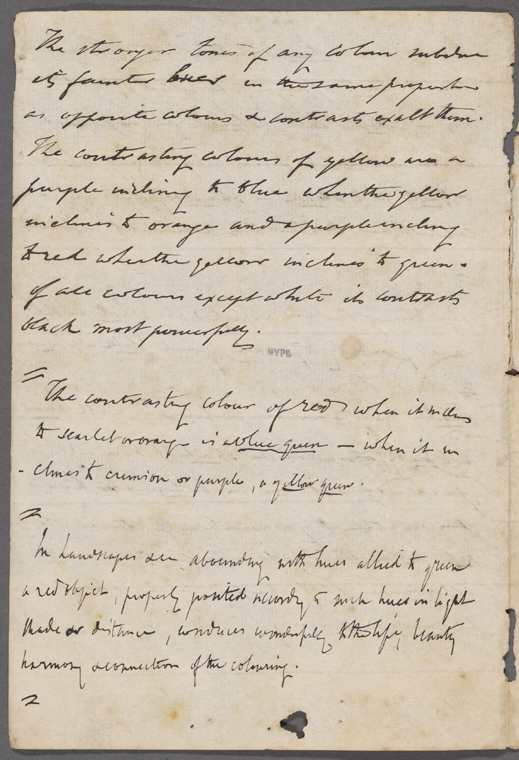 The stronger tones of any colour subdue
its fainter ones in the same proportion
as opposite colours & contrasts exalt them.
The contrasting colours of yellow are a
purple inclining to blue when the yellow
inclines to orange and a purple inclining
to red when the yellow inclines to green.
of all colours except white its contrasts
black most powerfully.
NYPL
The contrasting colour of red when it inclines
to scarlet or orange is a blue green — when it in
- clines to crimson or purple, a yellow green.
In Landscapes &c abounding with hues allied to green
a red object, properly posited according to such hues in light
shade or distance, conduces wonderfully to the life, beauty
harmony & connection of the colouring.